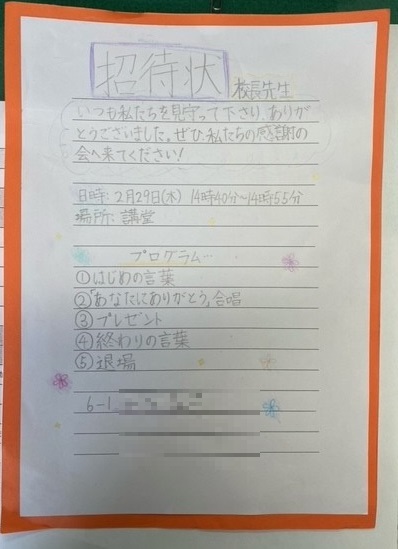 招待状
校長先生
いつも私たちを見守って下さり、ありが
とうございました。ぜひ、私たちの感謝の
会へ来てください!
日時: 2月29日(木) 14時40分〜14時55分
場所: 講堂
プログラム…
①はじめの言葉
②「あなたにありがとう」合唱
③プレゼント
④終わりの言葉
⑤退場
6-1